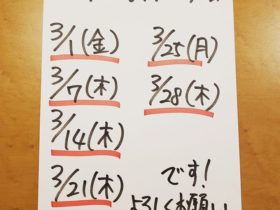 3/1(金)
3/7(木)
3/14(木)
3/21(木)
3/25(月)
3/28(木)
です!
よろしく願い